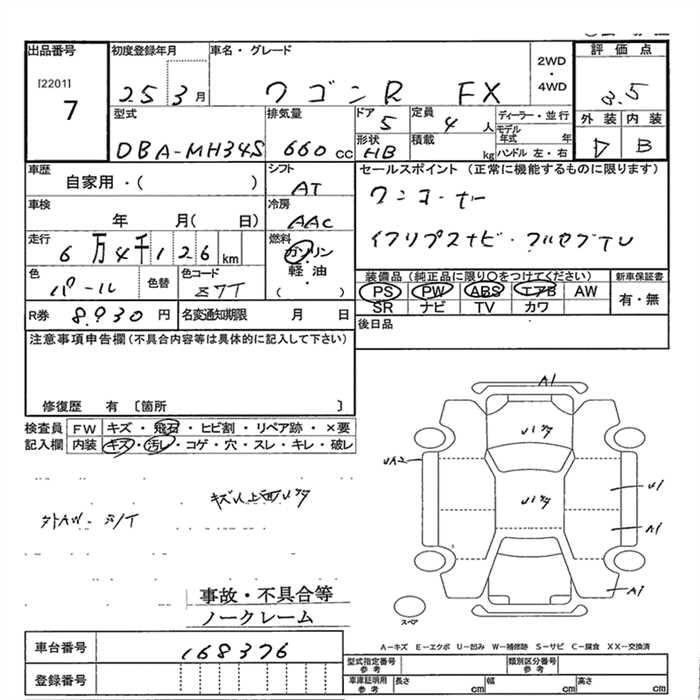 出品番号
[2201]
7
初度登録年月
25 3月
車名・グレード
ワゴンR FX
2WD
・
4WD
評価点
3.5
外装 内装
D B
型式
DBA-MH34S
排気量
660cc
ドア
5
定員
4人
形状
HB
積載
kg
ディーラー・並行
モデル年式 年
ハンドル 左・右
車歴
自家用・( )
シフト
AT
セールスポイント (正常に機能するものに限ります)
ワンオーナー
イクリプスナビ・フルセグTV
車検
年 月( 日)
冷房
AAC
走行
6万4千126km
燃料
ガソリン
・
軽油
・
( )
色
パール
色替
色コード
Z7T
装備品 (純正品に限り○をつけてください)
PS PW ABS エアB AW
SR ナビ TV カワ
新車保証書
有・無
R券 8.930円
名変通知期限 月 日
後日品
注意事項申告欄(不具合内容等は具体的に記入して下さい)
修復歴 有 〔箇所 〕
検査員記入欄
FW キズ・飛石・ヒビ割・リペア跡・×要
内装 キズ・汚レ・コゲ・穴・スレ・キレ・破レ
A1
UA2
U1
A1
A1
スペア
事故・不具合等
ノークレーム
車台番号 168376
登録番号
A-キズ E-エクボ U-凹み W-補修跡 S-サビ C-腐食 XX-交換済
型式指定番号 参考
類別区分番号 参考
車庫証明用 参考
長さ cm 幅 cm 高さ cm